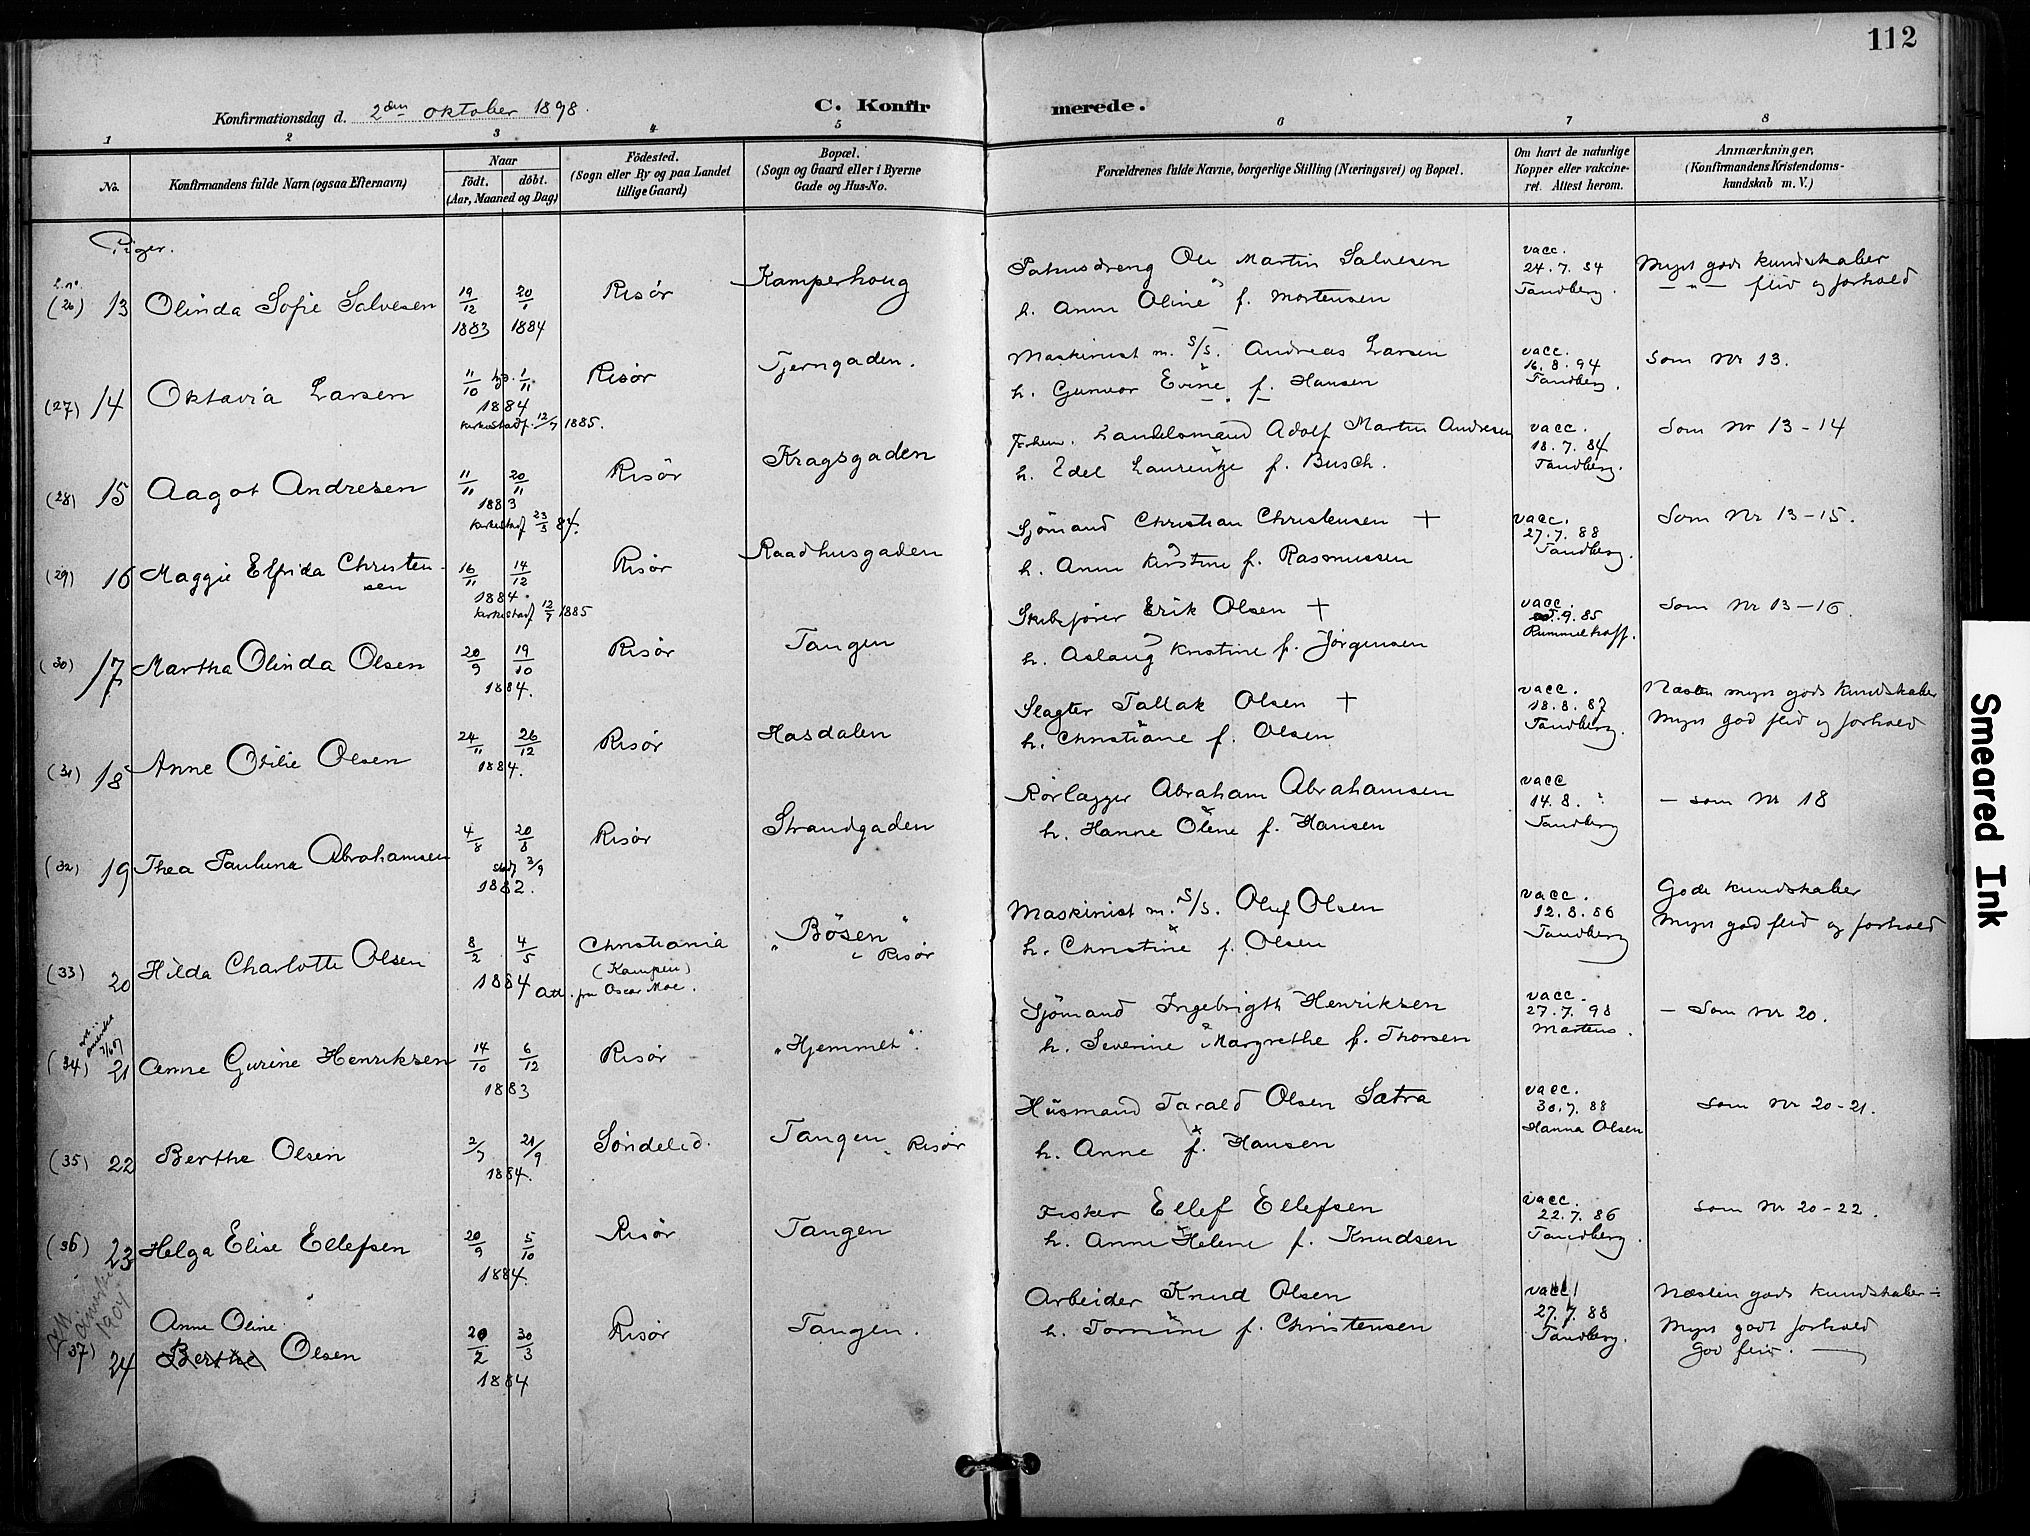 112
Konfirmationsdag d. 2den oktober 1898.
C. Konfirmerede.
1 2 3 4 5 6 7 8
No.
Konfirmandens fulde Navn (ogsaa Efternavn)
Naar
födt. döbt.
(Aar, Maaned og Dag)
Födested.
(Sogn eller By og paa Landet
tillige Gaard)
Bopæl.
(Sogn og Gaard eller i Byerne
Gade og Hus-No.
Forældrenes fulde Navne, borgerlige Stilling (Næringsvei) og Bopæl.
Om havt de naturlige
Kopper eller vakcine-
ret. Attest herom.
Anmærkninger,
(Konfirmandens Kristendoms-
kundskab m. V.)
Piger.
(26) 13 Olinda Sofie Salvesen 19/12 1883 20/1 1884 Risør Kamperhoug
Ole Martin Salvesen
h. Anne Oline f. Mortensen
vacc.
24.7.84
Tandberg.
Meget gode kundskaber
— " — flid og forhold
(27) 14 Oktavia Larsen 11/10 1/11 1884 Risør Tjerngaden.
kirkestadf. 12/7 1885.
Maskinist m. S/S. Andreas Larsen
h. Gunvor Evine f. Hansen
vacc.
16.8.94
Tandberg.
Som Nr 13.
(28) 15 Aagot Andresen 11/11 20/11 1883 Risør Kragsgaden
kirkestadf 23/3 84.
Forhen. Handelsmand Adolf Martin Andresen
h. Edel Laurentze f. Busch.
vacc.
18.7.84
Tandberg.
Som Nr 13-14
(29) 16 Maggie Elfrida Christen-
sen 16/11 14/12 1884. Risør Raadhusgaden
kirkestadf 12/7 1885
Sjømand Christian Christensen +
h. Anne Kirstine f. Rasmussen
vacc.
27.7.88
Tandberg.
Som Nr 13-15.
(30) 17 Martha Olinda Olsen 20/9 19/10 1884. Risør Tangen
Skibsfører Erik Olsen +
h. Aslaug Kristine f. Jørgensen
vacc.
9.85
Rummelhoff.
Som Nr 13-16.
(31) 18 Anne Otilie Olsen 24/11 26/12 1884. Risør Hasdalen
Slagter Tallak Olsen +
h. Christiane f. Olsen
vacc.
18.8.87
Tandberg.
Næsten meget gode kundskaber
Meget god flid og forhold
(32) 19 Thea Pauline Abrahamsen 4/8 20/8 Risør Strandgaden
stadf 3/9
1882.
Rørlægger Abraham Abrahamsen
h. Hanne Oline f. Hansen
vacc
14.8. ?
Tandberg
— som Nr 18
(33) 20 Hilda Charlotte Olsen 8/2 4/5 1884 Christiania "Bösen"
(Kampen) Risør
Att. fra Oscar Moe.
Maskinist m. S/S. Oluf Olsen
h. Christine f. Olsen
vacc.
12.8.86
Tandberg
Gode kundskaber
Meget god flid og forhold
(34) 21 Anne Gurine Henriksen 14/10 6/12 1883 Risør "Hjemmet".
Sjømand Ingebrigth Henriksen
h. Severine Margrethe f. Thorsen
vacc.
27.7.98
Martens.
— Som Nr 20.
(35) 22 Berthe Olsen 2/7 21/9 1884. Søndeled. Tangen Risør
Husmand Tarald Olsen Sætra
h. Anne f. Hansen
vacc.
30.7.88
Hanna Olsen
Som Nr 20-21.
(36) 23 Helga Elise Ellefsen 20/9 5/10 1884. Risør Tangen
Fisker Ellef Ellefsen
h. Anne Helene f. Knudsen
vacc.
22.7.86
Tandberg.
Som Nr 20-22.
1904
(37) 24 Anne Oline
Berthe Olsen 20/2 30/3 1884 Risør Tangen.
Arbeider Knud Olsen
h. Tomine f. Christensen
vacc
27.7.88
Tandberg.
Næsten gode kundskaber ÷
Meget godt forhold
God flid. —
Smeared Ink